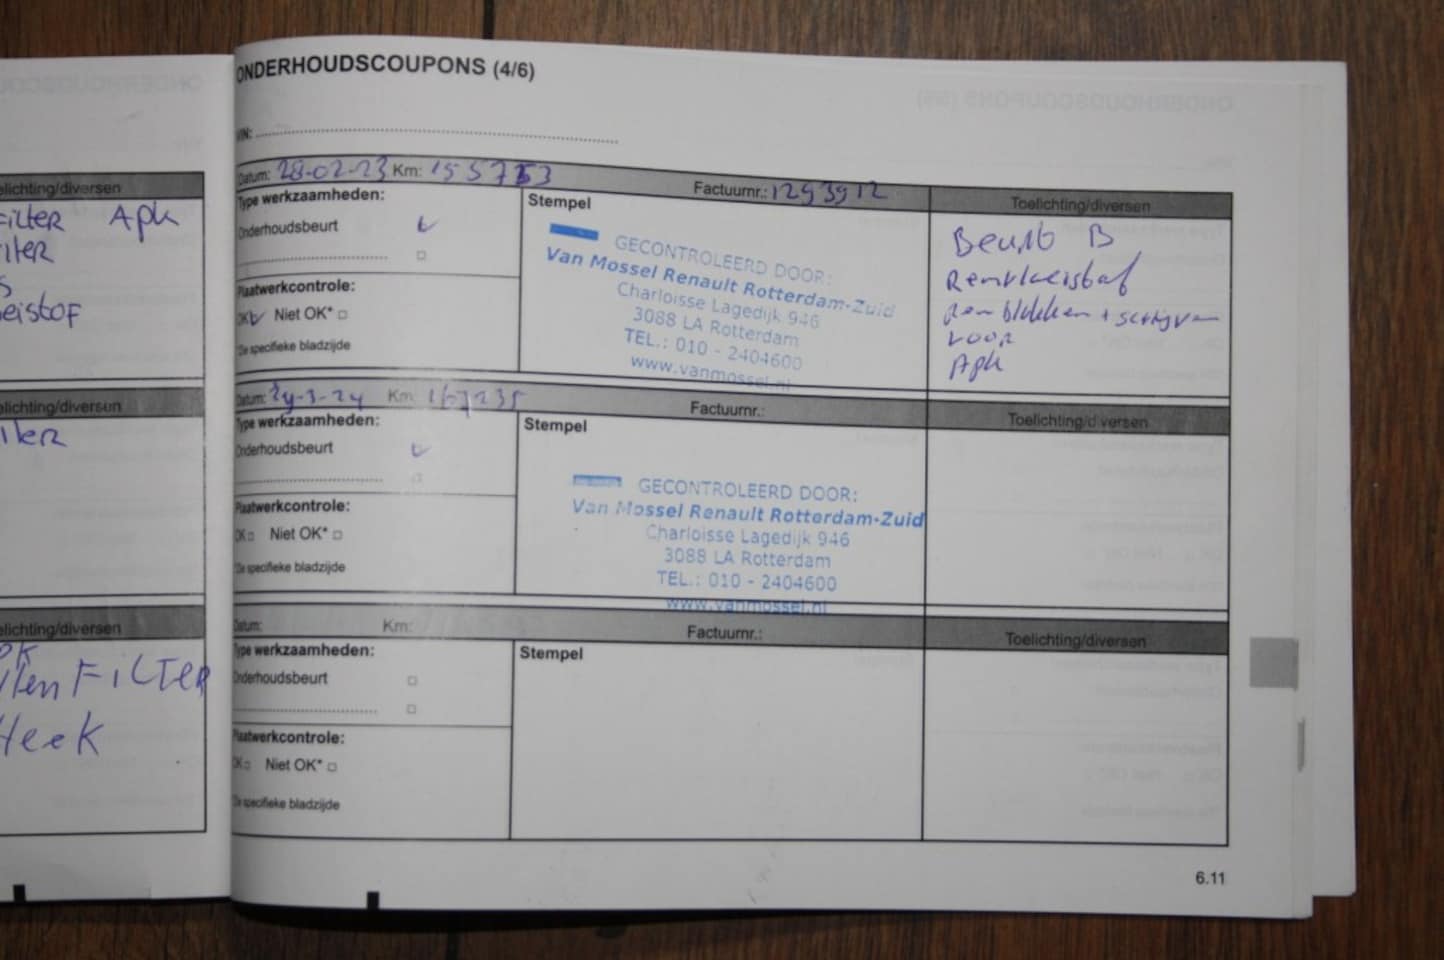 ONDERHOUDSCOUPONS (4/6)
VIN:
Datum: 28-02-23 Km: 155753 Factuurnr.: 1293912 Toelichting/diversen
Type werkzaamheden:
Onderhoudsbeurt
Plaatwerkcontrole:
OK Niet OK*
*Zie specifieke bladzijde
Stempel
GECONTROLEERD DOOR:
Van Mossel Renault Rotterdam-Zuid
Charloisse Lagedijk 946
3088 LA Rotterdam
TEL.: 010 - 2404600
www.vanmossel.nl
Beurt B
Remvloeistof
Remblokken + schijven
voor
Apk
Datum: 29-3-24 Km: 167235 Factuurnr.: Toelichting/diversen
Type werkzaamheden:
Onderhoudsbeurt
Plaatwerkcontrole:
OK Niet OK*
*Zie specifieke bladzijde
Stempel
GECONTROLEERD DOOR:
Van Mossel Renault Rotterdam-Zuid
Charloisse Lagedijk 946
3088 LA Rotterdam
TEL.: 010 - 2404600
www.vanmossel.nl
Datum: Km: Factuurnr.: Toelichting/diversen
Type werkzaamheden:
Onderhoudsbeurt
Plaatwerkcontrole:
OK Niet OK*
*Zie specifieke bladzijde
Stempel
6.11
elichting/diversen
Filter Apk
eistof
elichting/diversen
elichting/diversen
FILTER